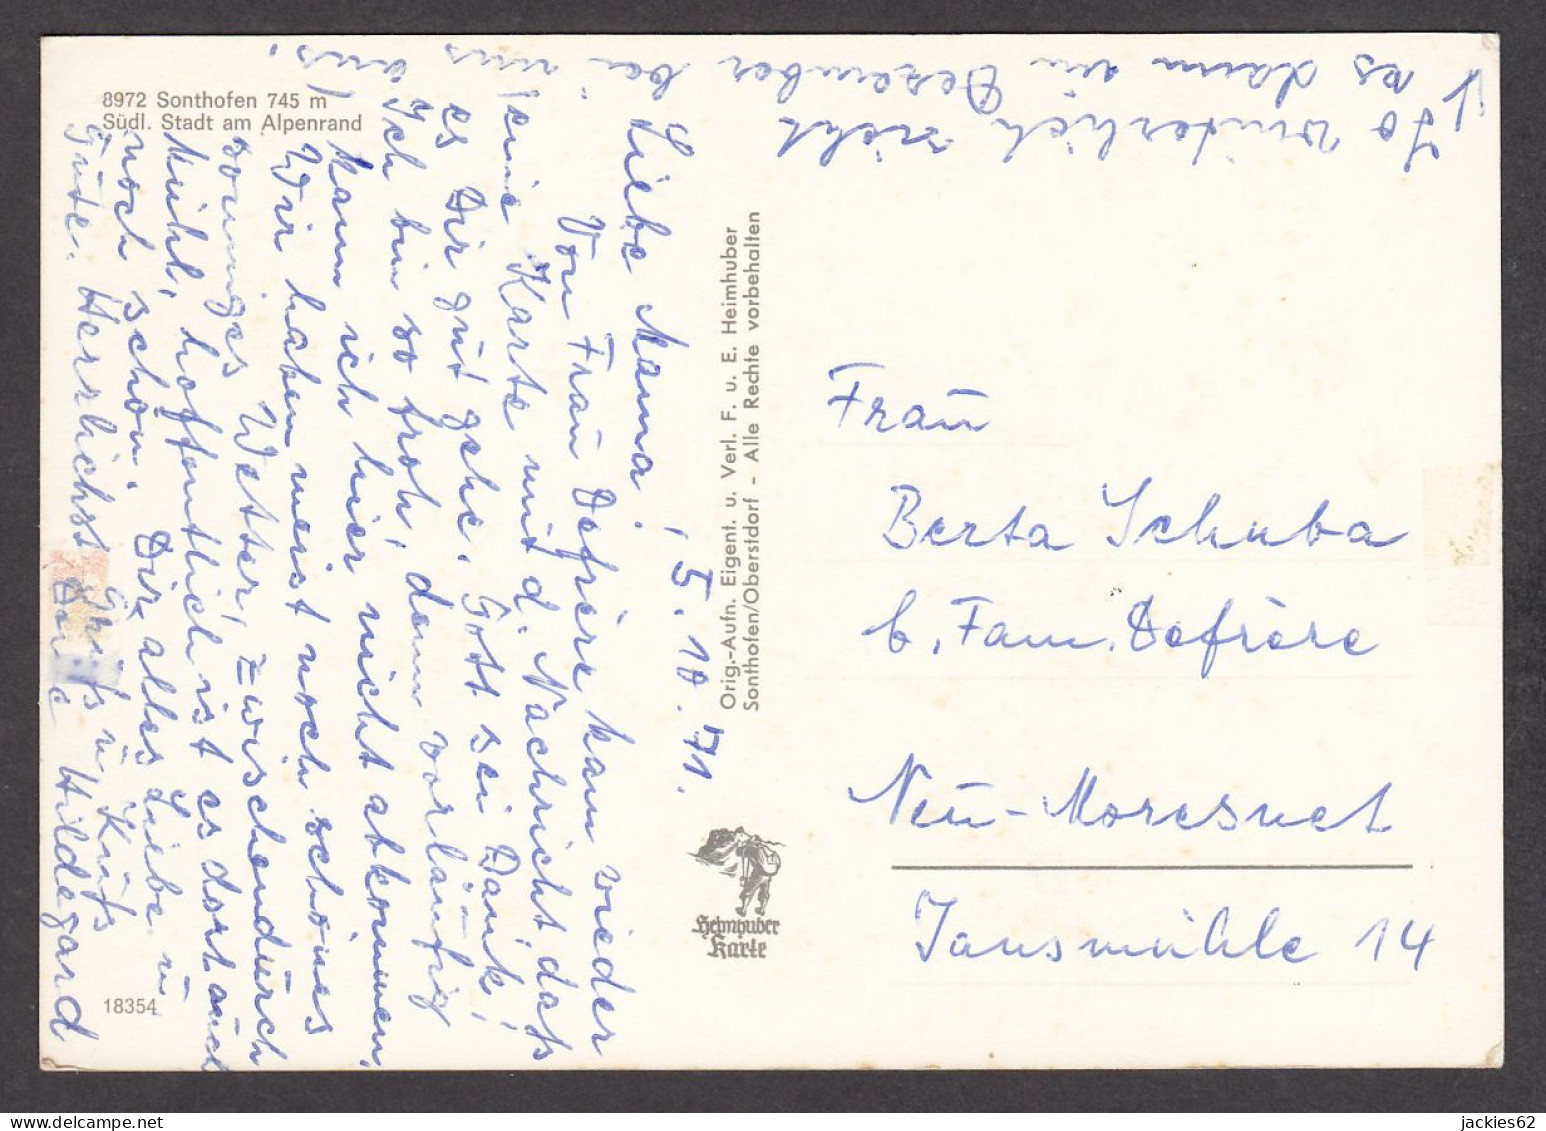 8972 Sonthofen 745 m
Südl. Stadt am Alpenrand
5.10.71.
Liebe Mama!
Von Frau Defrère kam wieder
eine Karte mit d. Nachricht daß
es Dir gut gehe. Gott sei Dank!
Ich bin so froh, denn vorläufig
kann ich hier nicht abkommen.
Wir haben meist noch schönes
sonniges Wetter, zwischendurch
kühl, hoffentlich ist es dort auch
noch schön. Dir alles Liebe u.
Gute. Herzlichst Grüß u. Kuß
Deine Hildegard
So winterlich sieht
es dann im Dezember bei uns aus!
Orig.-Aufn. Eigent. u. Verl. F. u. E. Heimhuber
Sonthofen/Oberstdorf - Alle Rechte vorbehalten
Heimhuber
Karte
Frau
Berta Schuba
b. Fam. Defrère
Neu-Moresnet
Jansmühle 14
18354
jackies62